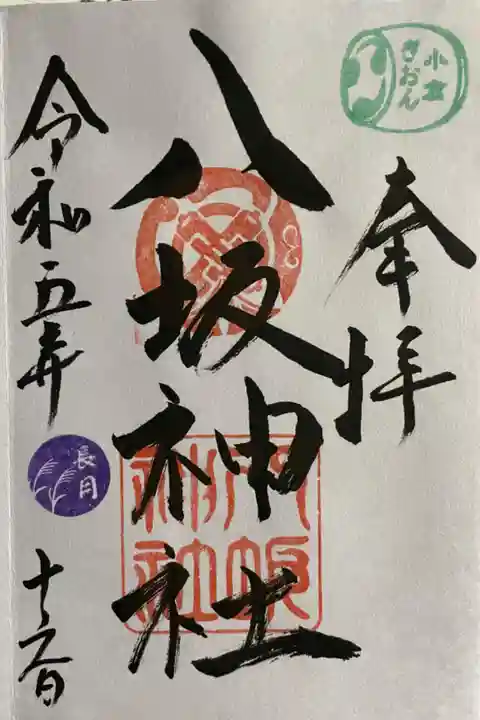 小倉
ぎおん
奉拝
八坂神社
八坂
神社
令和五年
長月
十六日